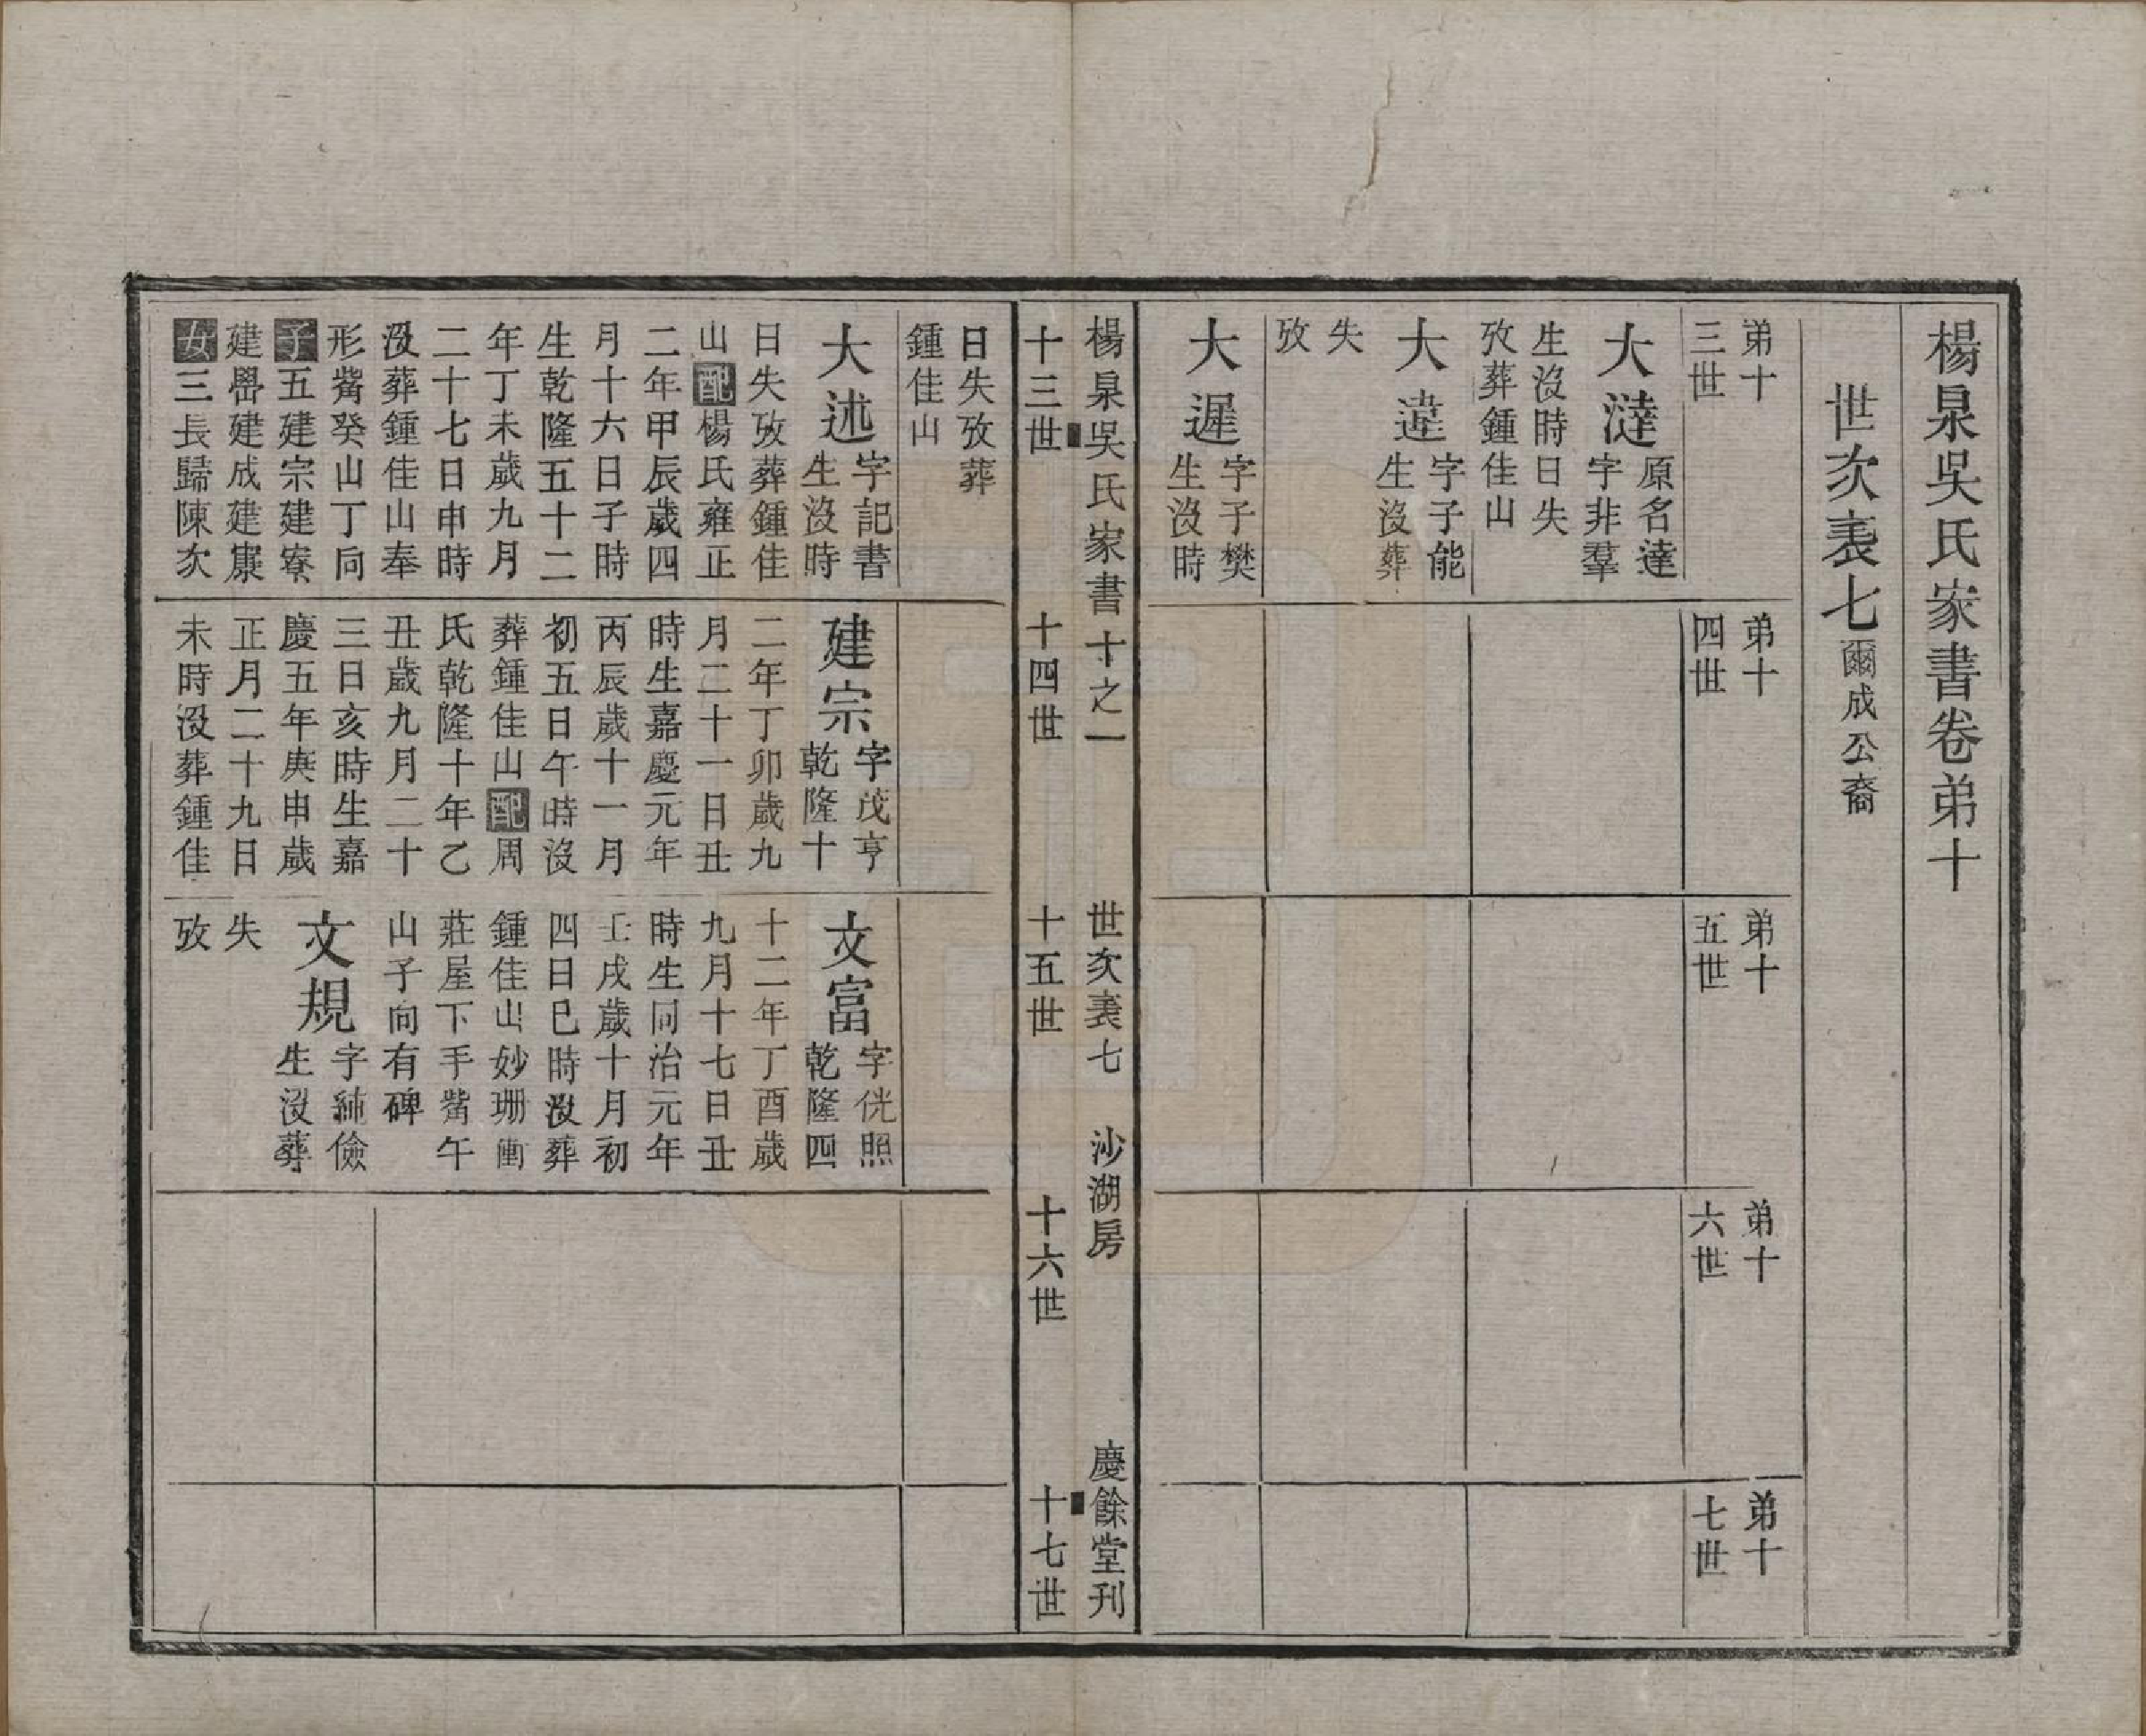 楊泉吳氏家書卷弟十
世次表七爾成公裔
弟十
三世
大澾
原名達
字非羣
生沒時日失
攷葬鍾佳山
大達
字子能
生沒葬
失
攷
大遲
字子樊
生沒時
弟十
四世
弟十
五世
弟十
六世
弟十
七世
楊泉吳氏家書十之一
世次表七
沙湖房
慶餘堂刊
十三世
十四世
十五世
十六世
十七世
日失攷葬
鍾佳山
大述
字記書
生沒時
日失攷葬鍾佳
山配楊氏雍正
二年甲辰歲四
月十六日子時
生乾隆五十二
年丁未歲九月
二十七日申時
沒葬鍾佳山奉
形觜癸山丁向
子五建宗建寮
建嶨建成建康
女三長歸陳次
建宗
字茂亨
乾隆十
二年丁卯歲九
月二十一日丑
時生嘉慶元年
丙辰歲十一月
初五日午時沒
葬鍾佳山配周
氏乾隆十年乙
丑歲九月二十
三日亥時生嘉
慶五年庚申歲
正月二十九日
未時沒葬鍾佳
文富
字侊照
乾隆四
十二年丁酉歲
九月十七日丑
時生同治元年
壬戌歲十月初
四日巳時沒葬
鍾佳山妙珊衝
莊屋下手觜午
山子向有碑
文規
字純儉
生沒葬
失
攷